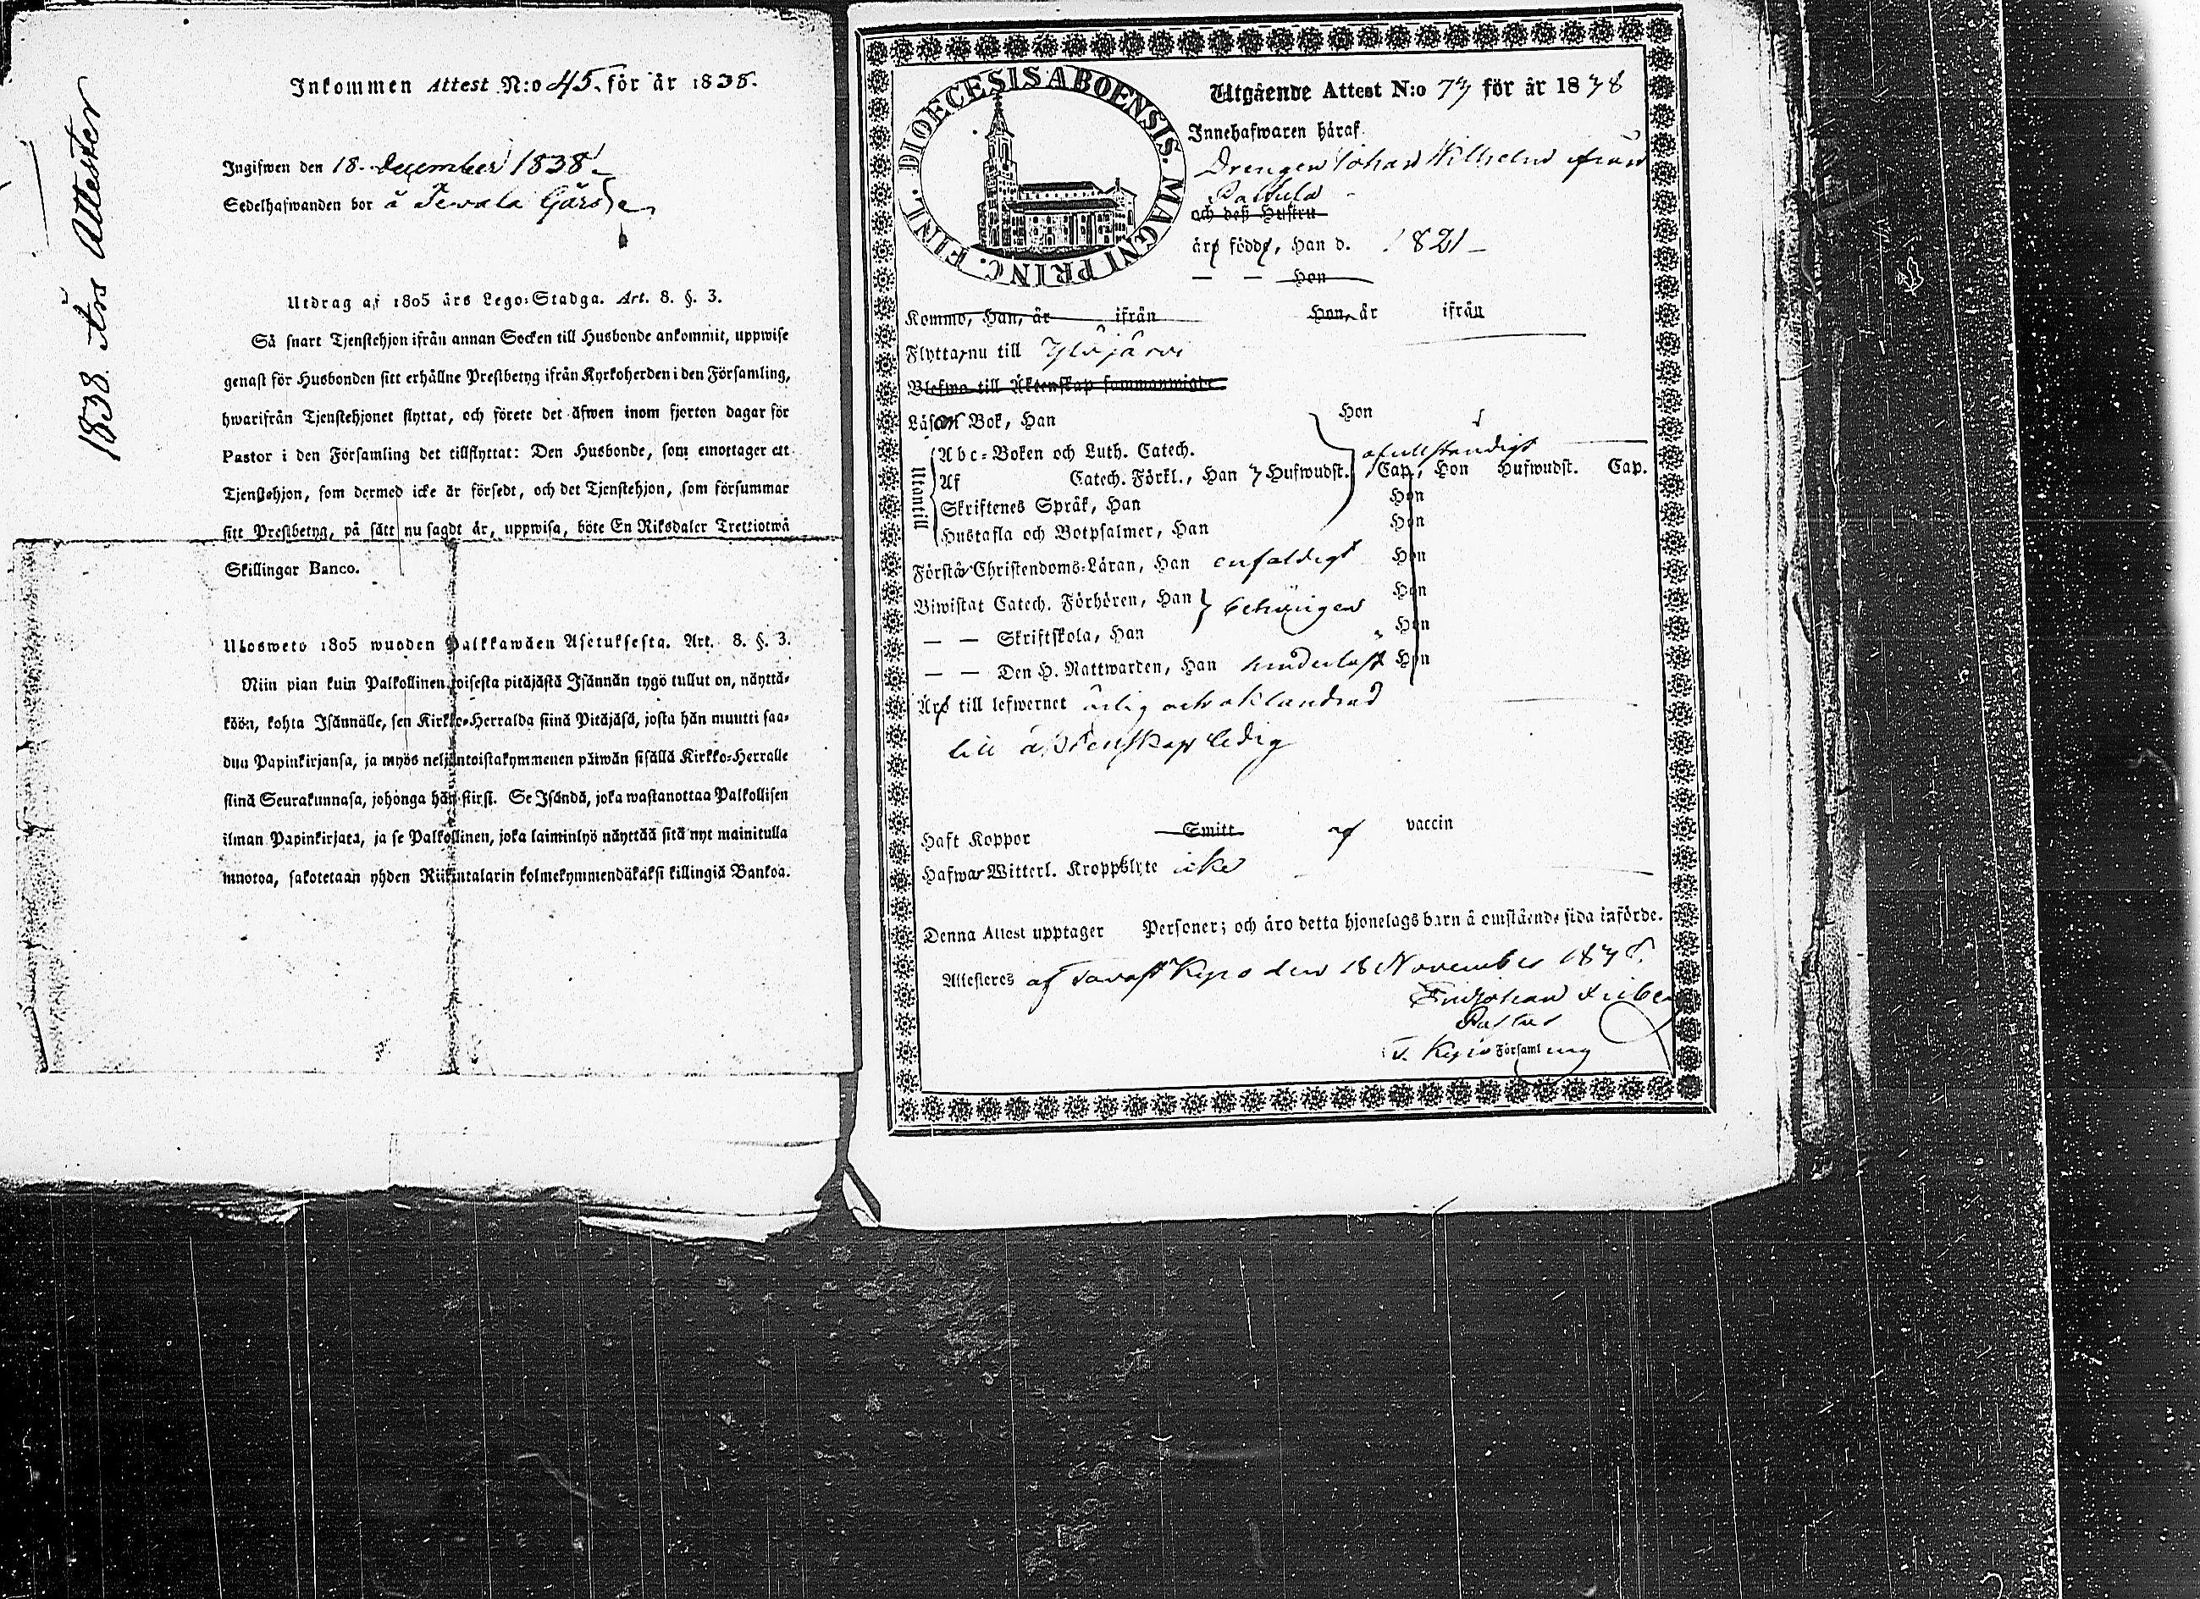 1838 Års Attester
Inkommen Attest N:o 45. för år 1838.
Ingifwen den 18. December 1838.
Sedelhafwanden bor å Tewala Gård
Utdrag af 1805 års Lego-Stadga. Art. 8. §. 3.
Så snart Tjenstehjon ifrån annan Socken till Husbonde ankommit, uppwise
genast för Husbonden sitt erhållne Prestbetyg ifrån Kyrkoherden i den Församling,
hwarifrån Tjenstehjonet flyttat, och förete det äfwen inom fjorton dagar för
Pastor i den Församling det tillflyttat: Den Husbonde, som emottager ett
Tjenstehjon, som dermed icke är försedt, och det Tjenstehjon, som försummar
sitt Prestbetyg, på sätt nu sagdt är, uppwisa, böte En Riksdaler Trettiotwå
Skillingar Banco.
Ulosweto 1805 wuoden Palkkawäen Asetuksesta. Art. 8. §. 3.
Niin pian kuin Palkollinen toisesta pitäjästä Isännän tygö tullut on, näyttä-
köön, kohta Isännälle, sen Kirkko-Herralda siinä Pitäjäsä, josta hän muutti saa-
dun Papinkirjansa, ja myös neljäntoistakymmenen päiwän sisällä Kirkko-Herralle
siinä Seurakunnasa, johonga hän siirsi. Se Isändä, joka wastanottaa Palkollisen
ilman Papinkirjata, ja se Palkollinen, joka laiminlyö näyttää sitä nyt mainitulla
muotoa, sakotetaan yhden Riikintalarin kolmekymmendäkaksi killingiä Bankoa.
DIOECESIS ABOENSIS. MAGNI PRINC. FINL.
Utgående Attest N:o 77 för år 1838
Innehafwaren häraf
Drengen Johan Wilhelm ifrån
och deß Hustru
äro födde, Han d. 1821
— — Hon
Kommo, Han, år ifrån Hon, år ifrån
Flytta nu till Ylöjärvi
Blefwo till Äktenskap sammanwigde
Läsa i Bok, Han Hon
Utantill
Abc-Boken och Luth. Catech. ofullständigt
Af Catech. Förkl., Han 7 Hufwudst. Cap., Hon Hufwudst. Cap.
Skriftenes Språk, Han Hon
Hustafla och Botpsalmer, Han Hon
Förstå Christendoms-Läran, Han enfaldigt Hon
Biwistat Catech. Förhören, Han behörigen Hon
— — Skriftskola, Han Hon
— — Den H. Nattwarden, Han hinderlöst Hon
Äro till lefwernet ärlig och oklandrad
till äktenskap ledig
Haft Koppor Smitt af vaccin
Hafwa Witterl. Kroppslyte icke
Denna Attest upptager Personer; och äro detta hjonelags barn å omstående sida införde.
Attesteres af Tavast Kyro den 18 November 1838.
Pastor
T. Kyro Församling